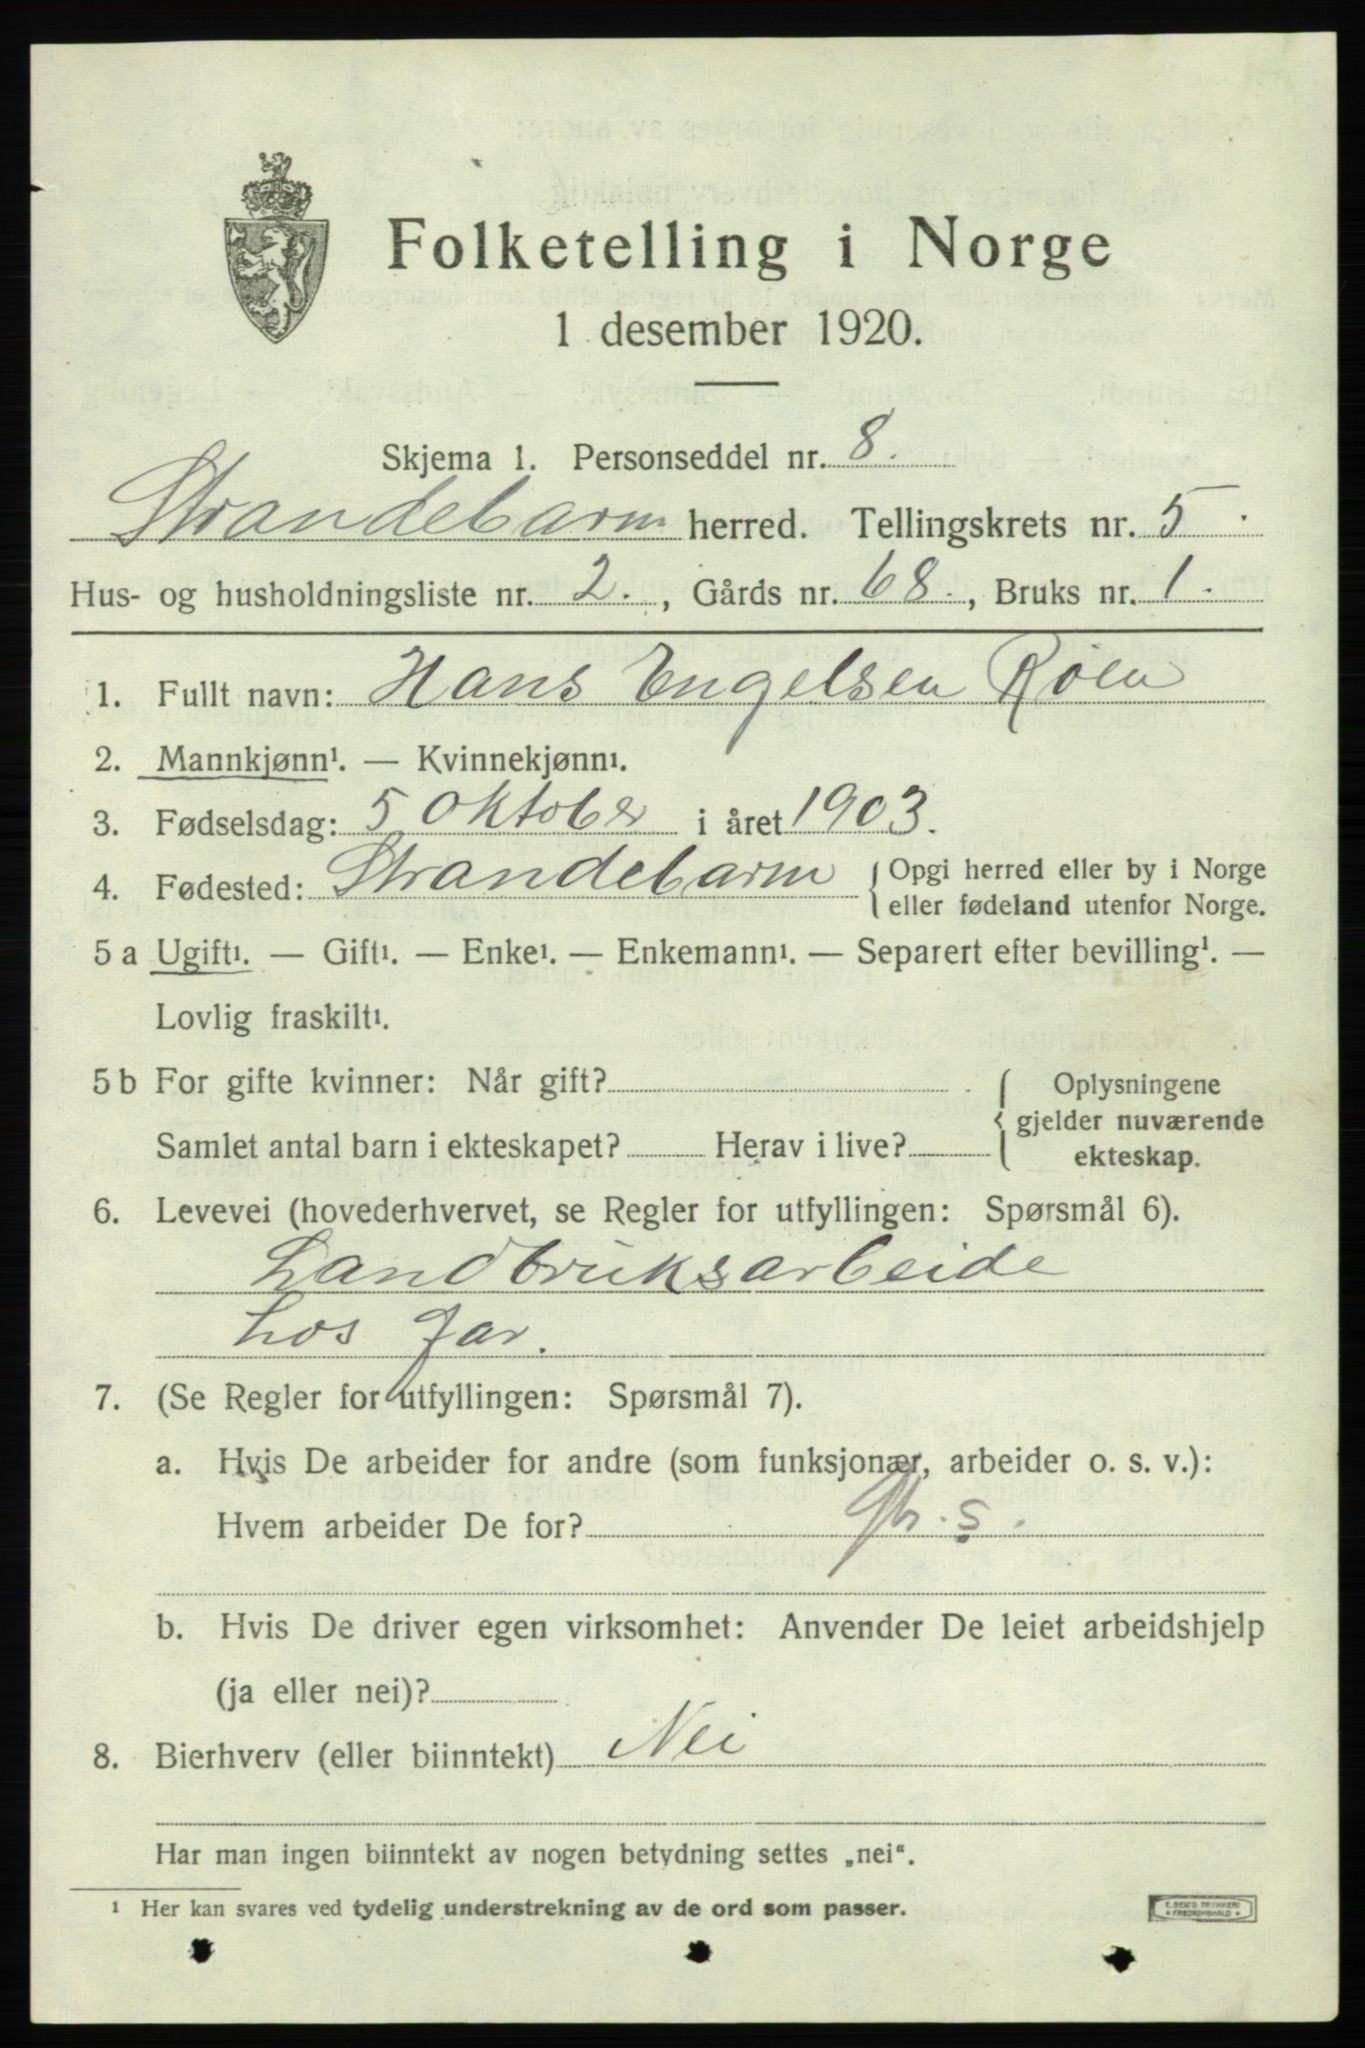 Folketelling i Norge
1 desember 1920.
Skjema 1. Personseddel nr. 8.
Strandebarm herred. Tellingskrets nr. 5.
Hus- og husholdningsliste nr. 2., Gårds nr. 68., Bruks nr. 1.
1. Fullt navn: Hans Engelsen Røen
2. Mannkjønn¹. — Kvinnekjønn¹.
3. Fødselsdag: 5 Oktober i året 1903.
4. Fødested: Strandebarm { Opgi herred eller by i Norge
eller fødeland utenfor Norge.
5 a Ugift¹. — Gift¹. — Enke¹. — Enkemann¹. — Separert efter bevilling¹. —
Lovlig fraskilt¹.
5 b For gifte kvinner: Når gift?
Samlet antal barn i ekteskapet? Herav i live?
{ Oplysningene
gjelder nuværende
ekteskap.
6. Levevei (hovederhvervet, se Regler for utfyllingen: Spørsmål 6).
Landbruksarbeide
hos far.
7. (Se Regler for utfyllingen: Spørsmål 7).
a. Hvis De arbeider for andre (som funksjonær, arbeider o. s. v.):
Hvem arbeider De for?
b. Hvis De driver egen virksomhet: Anvender De leiet arbeidshjelp
(ja eller nei)?
8. Bierhverv (eller biinntekt) Nei
Har man ingen biinntekt av nogen betydning settes „nei“.
¹ Her kan svares ved tydelig understrekning av de ord som passer.
E. SEM'S TRYKKERI
FREDRIKSHALD